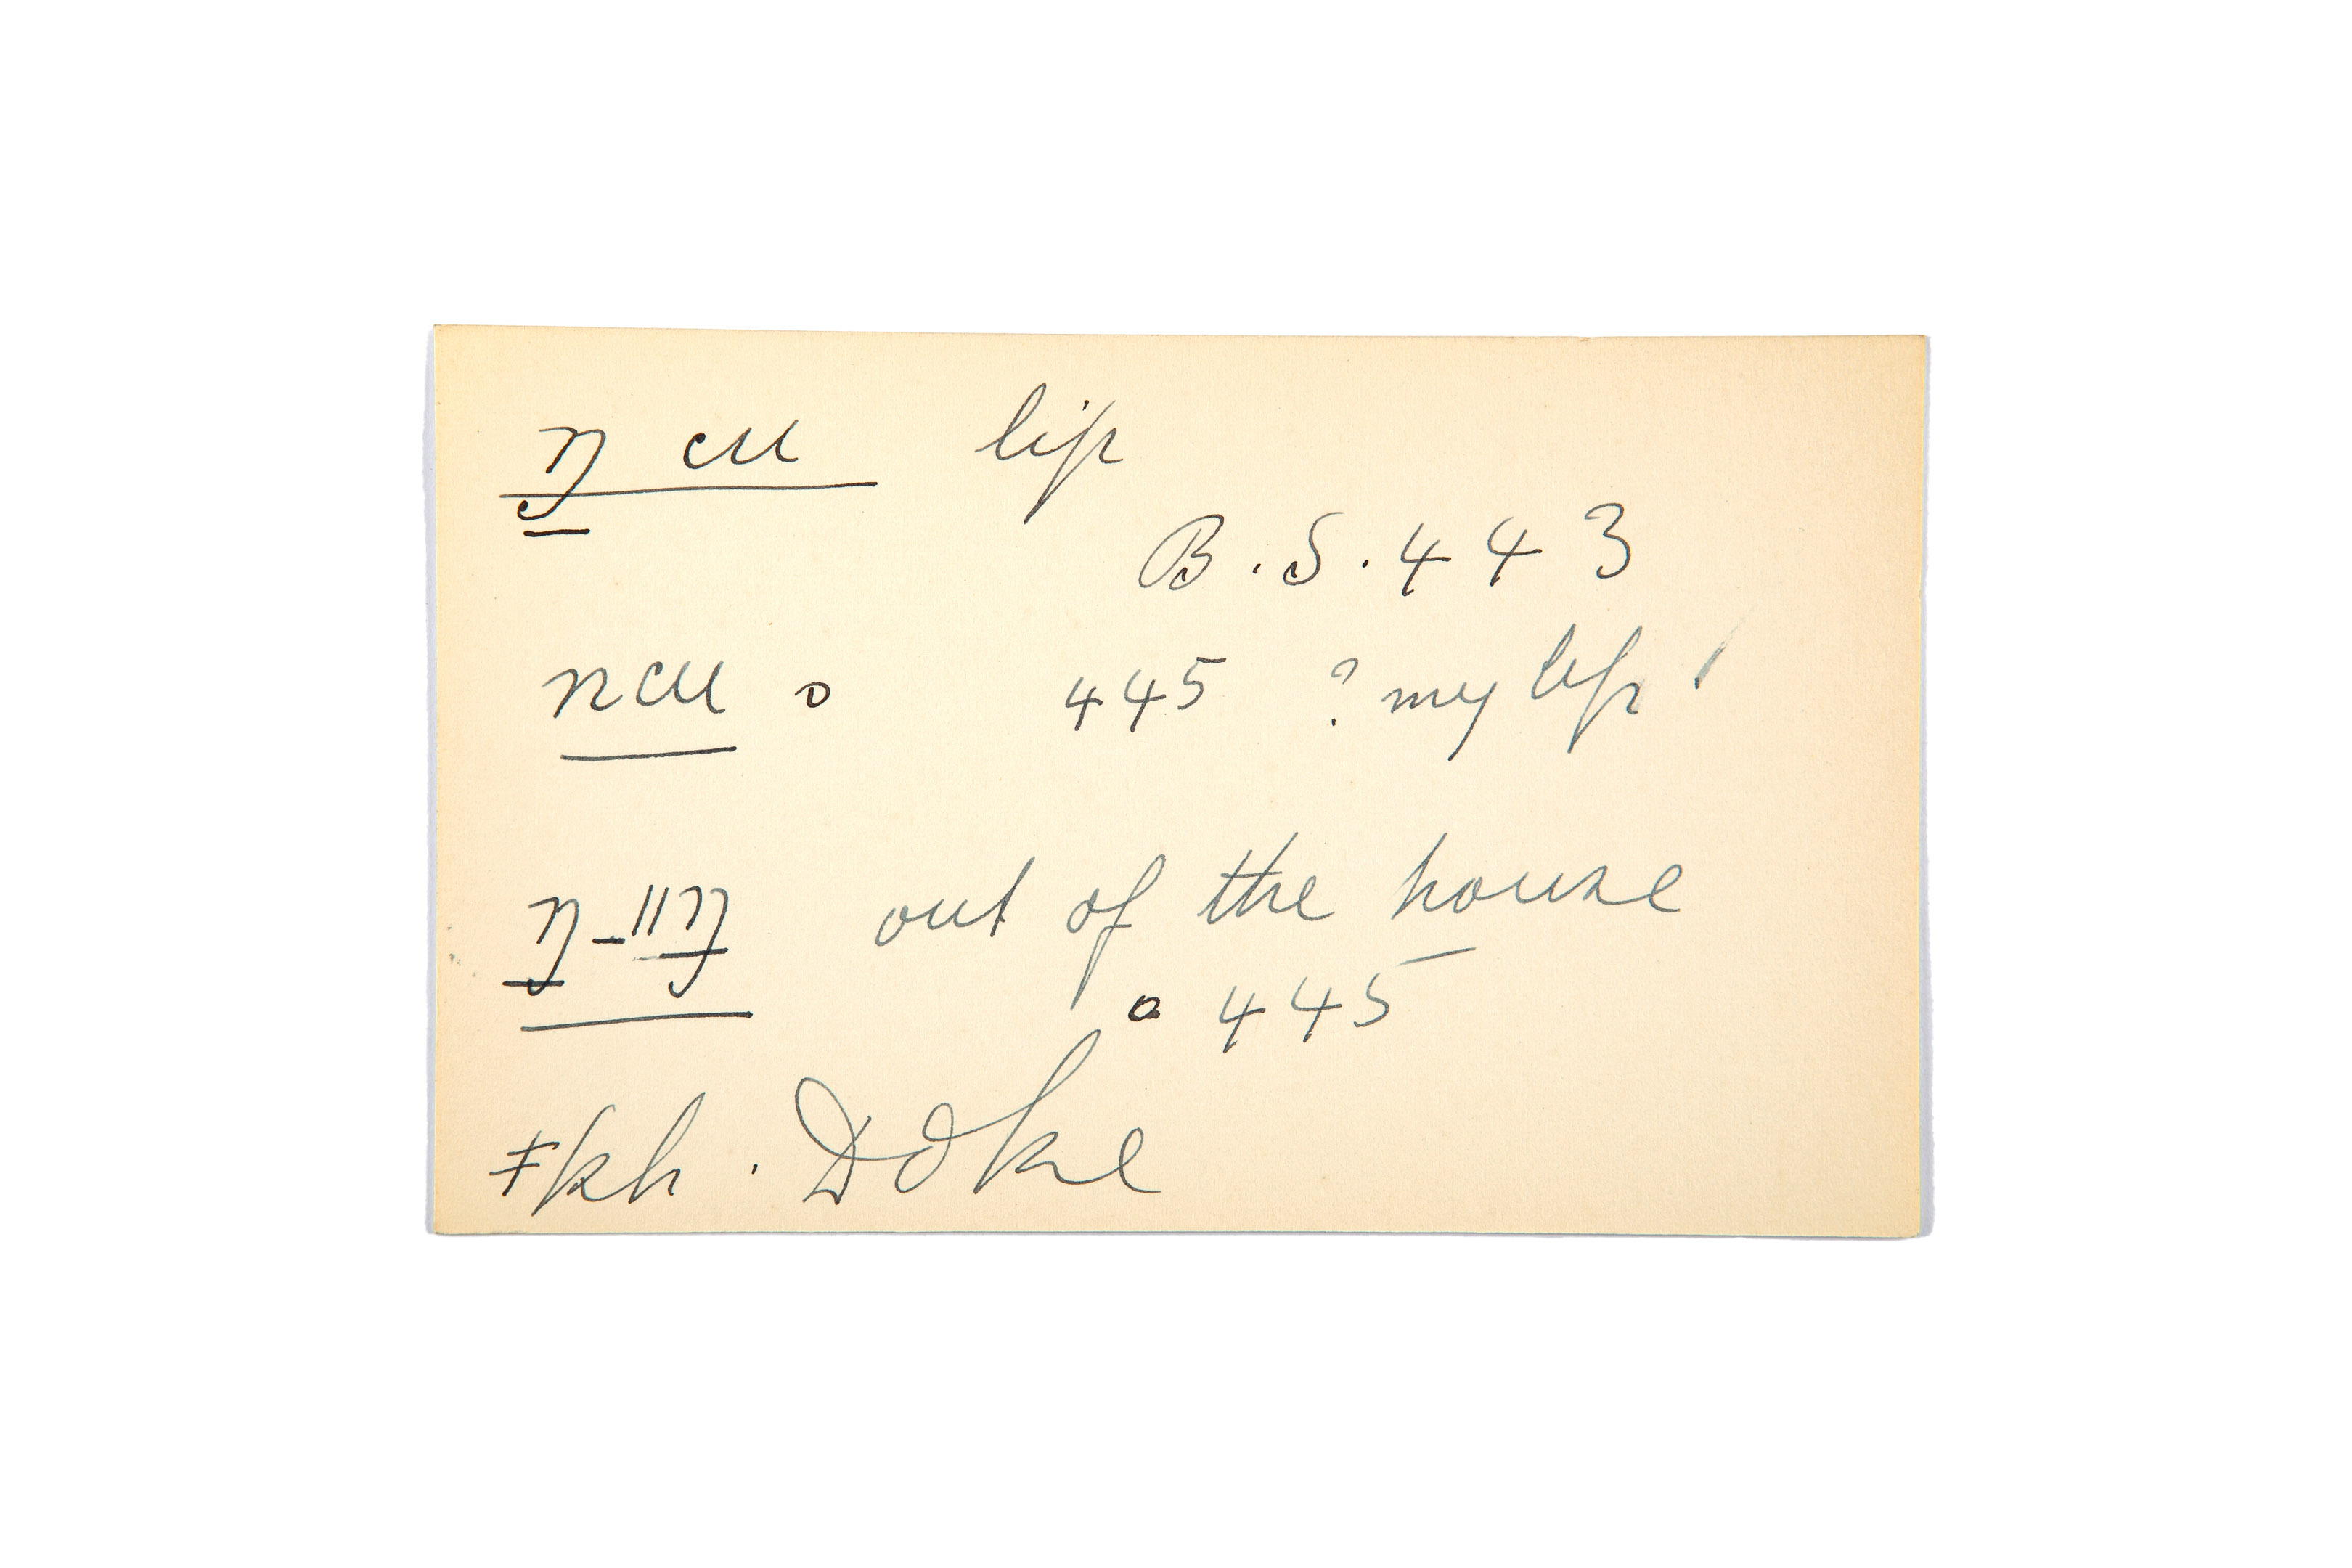 ŋ cu lip
B.S.443
ncu o 445 ? my lip !
ŋ-ǁŋ out of the house
o 445
ǂkh. Doke